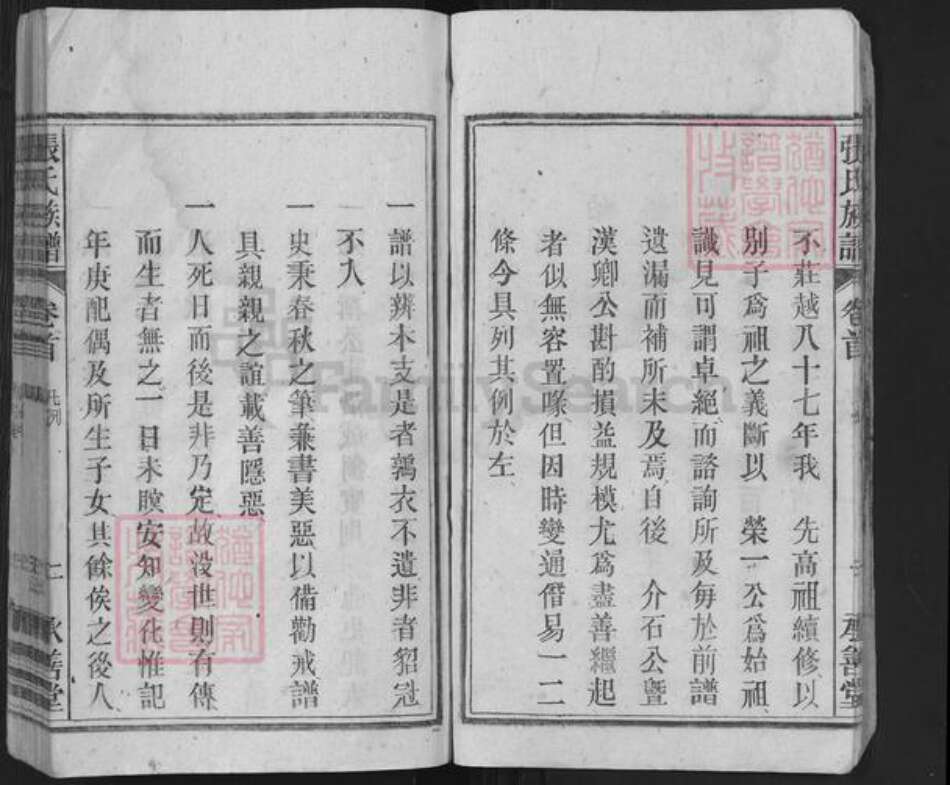 張氏族譜
卷首
承善堂
不莊越八十七年我　先高祖續修以
別子爲祖之義斷以　榮一公爲始祖
識見可謂卓絕而諮詢所及每於前譜
遺漏而補所未及焉自後　介石公暨
漢卿公斟酌損益規模尤爲盡善繼起
者似無容置喙但因時變通僭易一二
條今具列其例於左
一譜以辨本支是者鶉衣不遺非者貂冠
不入
一史秉春秋之筆兼書美惡以備勸戒譜
具親親之誼載善隱惡
一人死日而後是非乃定故没世則有傳
而生者無之一日未瞑安知變化惟記
年庚配偶及所生子女其餘俟之後人
張氏族譜
卷首
凡例
承善堂
FamilySearch